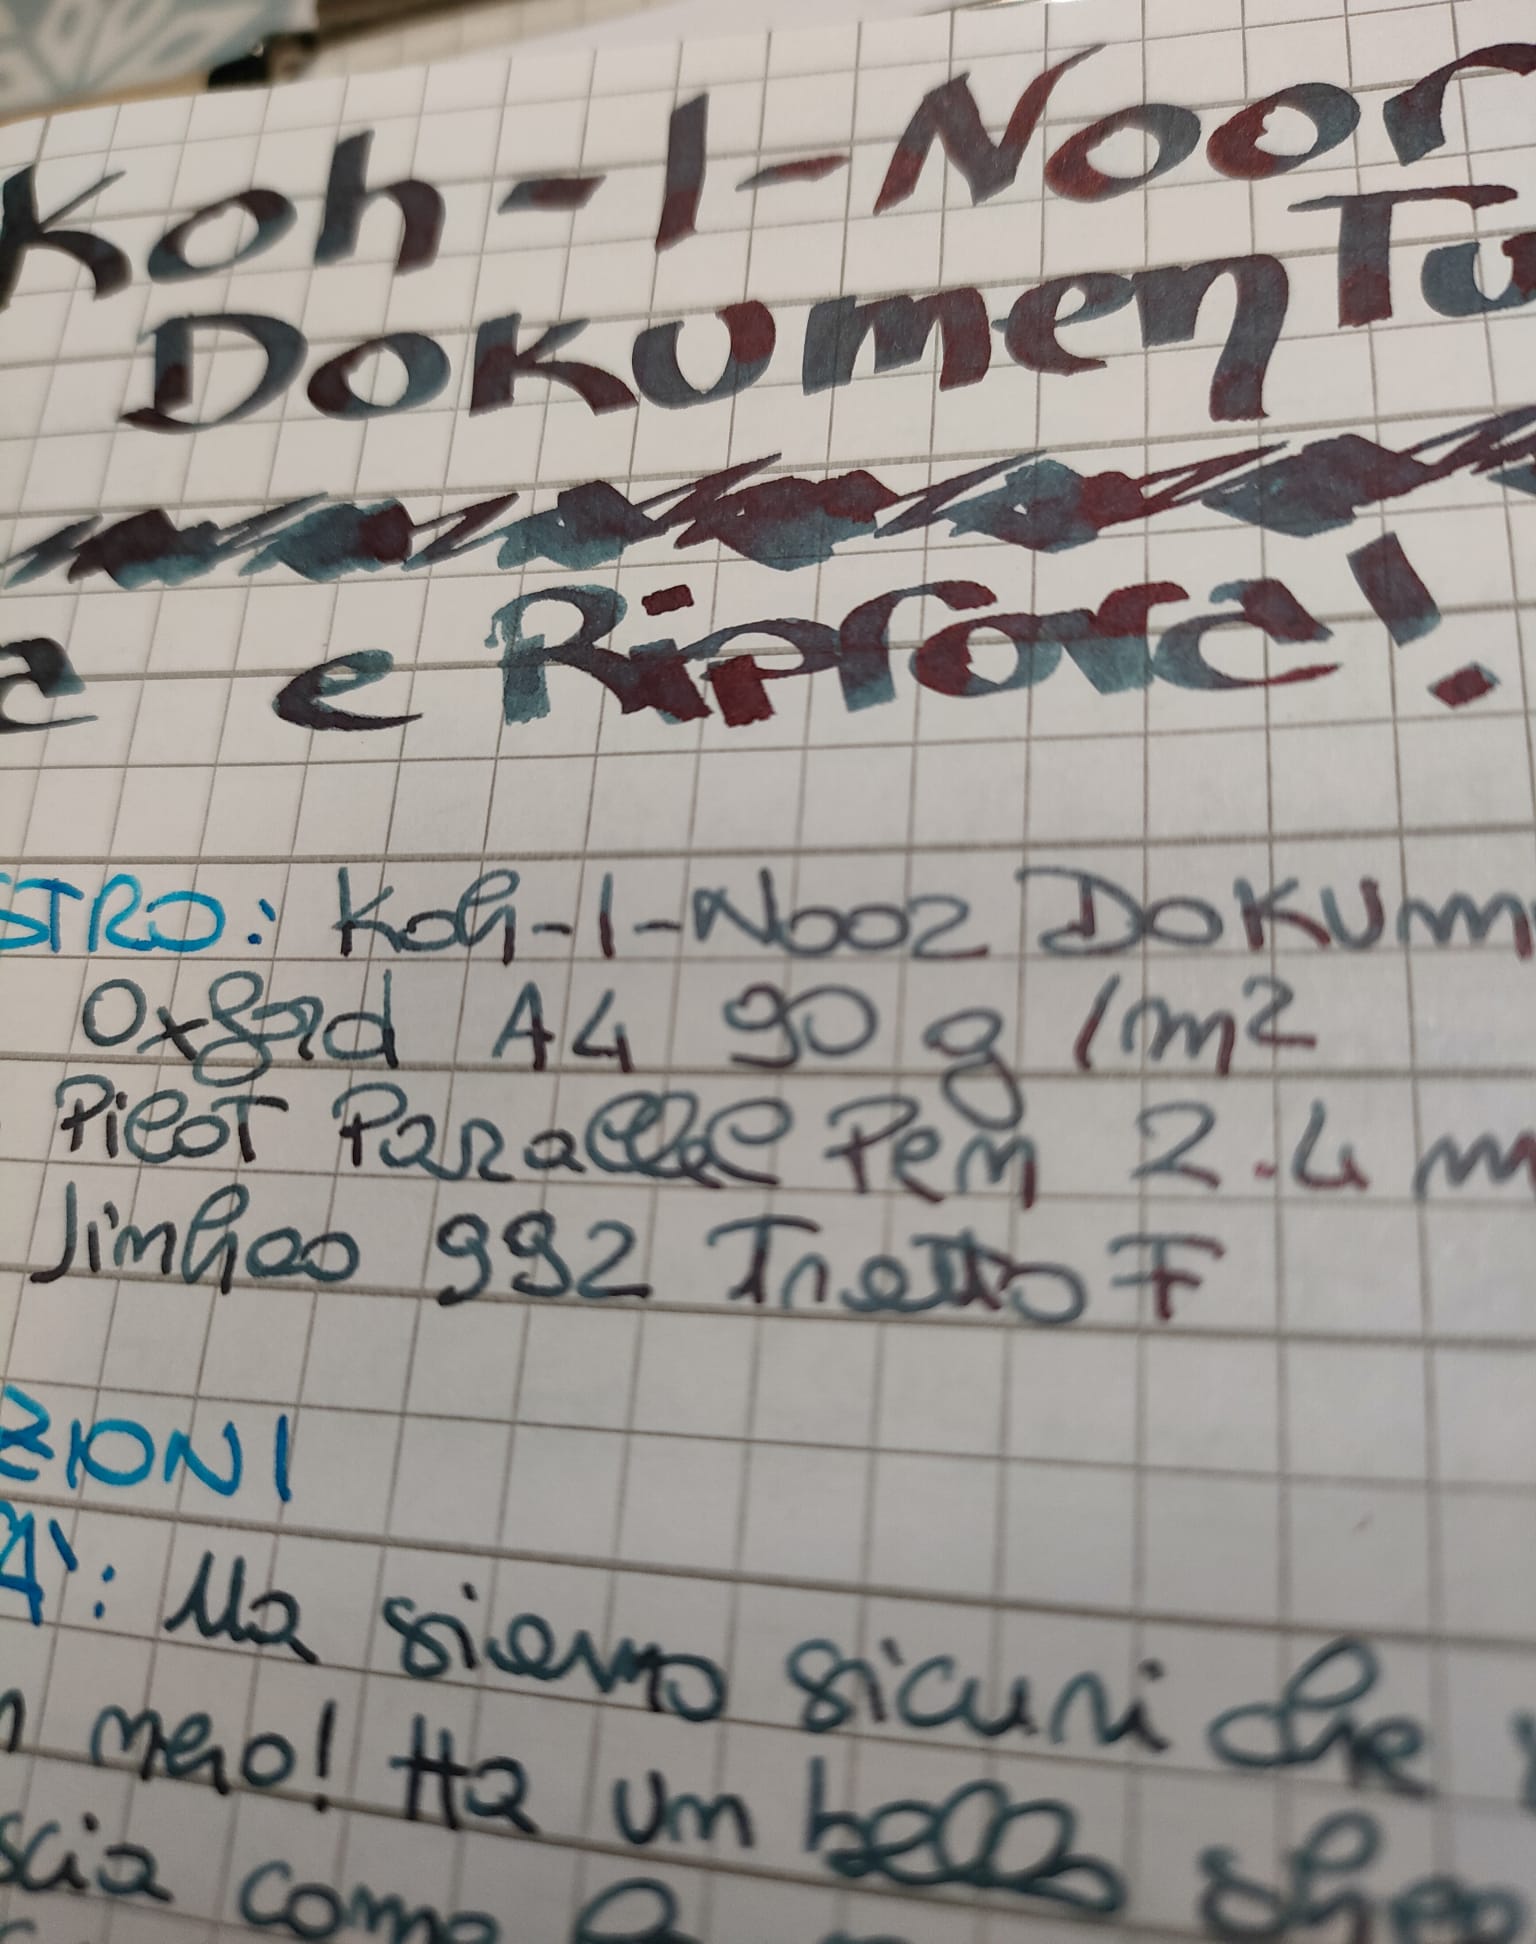 Koh-I-Noor
Dokumentu
a e Riprova!
STRO: Koh-I-Noor Dokum
Oxford A4 90 g/m²
Pilot Parallel Pen 2.4 m
Jinhao 992 Tratto F
ZIONI
TA': Ma siamo sicuri che
n nero! Ha un bello sheen
scia come